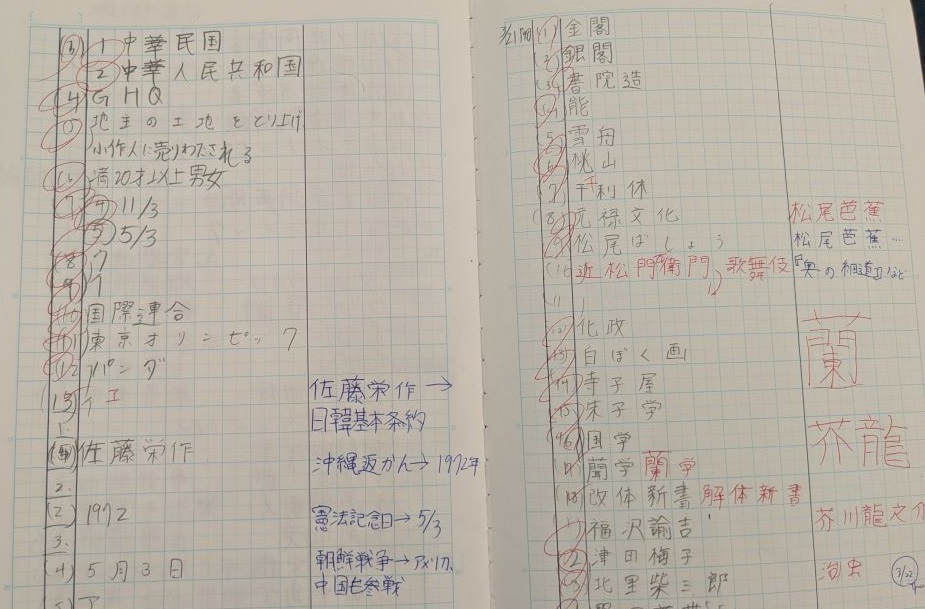 (3) 1 中華民国
2 中華人民共和国
(4) GHQ
地主の土地をとり上げ
小作人に売りわたされる
(6) 満20才以上男女
(7) 11/3
5/3
(8) ウ
(9) ウ
国際連合
(11) 東京オリンピック
(12) パンダ
(13) イ エ
佐藤栄作 →
日韓基本条約
1.
佐藤栄作
沖縄返かん→1972年
2.
(2) 1972
憲法記念日→5/3
3.
(4) 5月3日
朝鮮戦争→アメリカ、
中国も参戦
ア
(1) 金閣
(2) 銀閣
(3) 書院造
(4) 能
(5) 雪舟
(6) 桃山
(7) 千利休
(8) 元禄文化
松尾芭蕉
(9) 松尾ばしょう
松尾芭蕉…
近松門衛門 歌舞伎
『奥の細道』など
(11)
化政
蘭
白ぼく画
(14) 寺子屋
(15) 朱子学
芥龍
(16) 国学
蘭学 蘭学
(18) 改体新書 解体新書
福沢諭吉
芥川龍之介
(2) 津田梅子
(3) 北里柴三郎
3/22